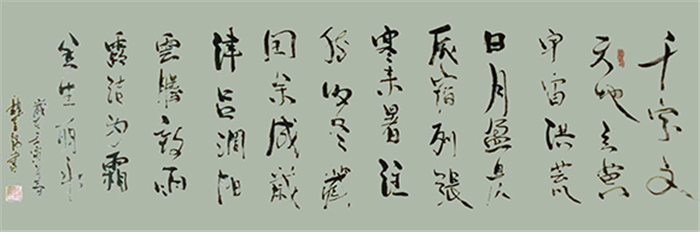 千字文
天地玄黄
宇宙洪荒
日月盈昃
辰宿列張
寒来暑往
秋收冬藏
闰余成歲
律吕調陽
雲騰致雨
露结为霜
金生丽水